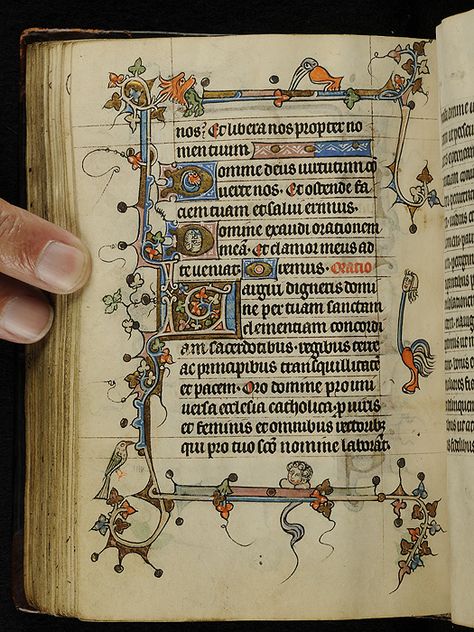 nos? Et libera nos propter no
men tuum
Domine deus uirtutum cō
uerte nos. Et ostende fa
ciem tuam et salui erimus.
Domine exaudi orationem
meā. Et clamor meus ad
te ueniat. Oremus. Oratio
Largiri digneris domi
ne per tuam sanctam
clementiam concordi
am sacerdotibus. regibus terre
ac principibus tranquillitatē
et pacem. Oro domine pro uni
uersa ecclesia catholica. p uiris
et feminis et omnibus rectoribꝰ
qui pro tuo sc̄o nomine laborāt.